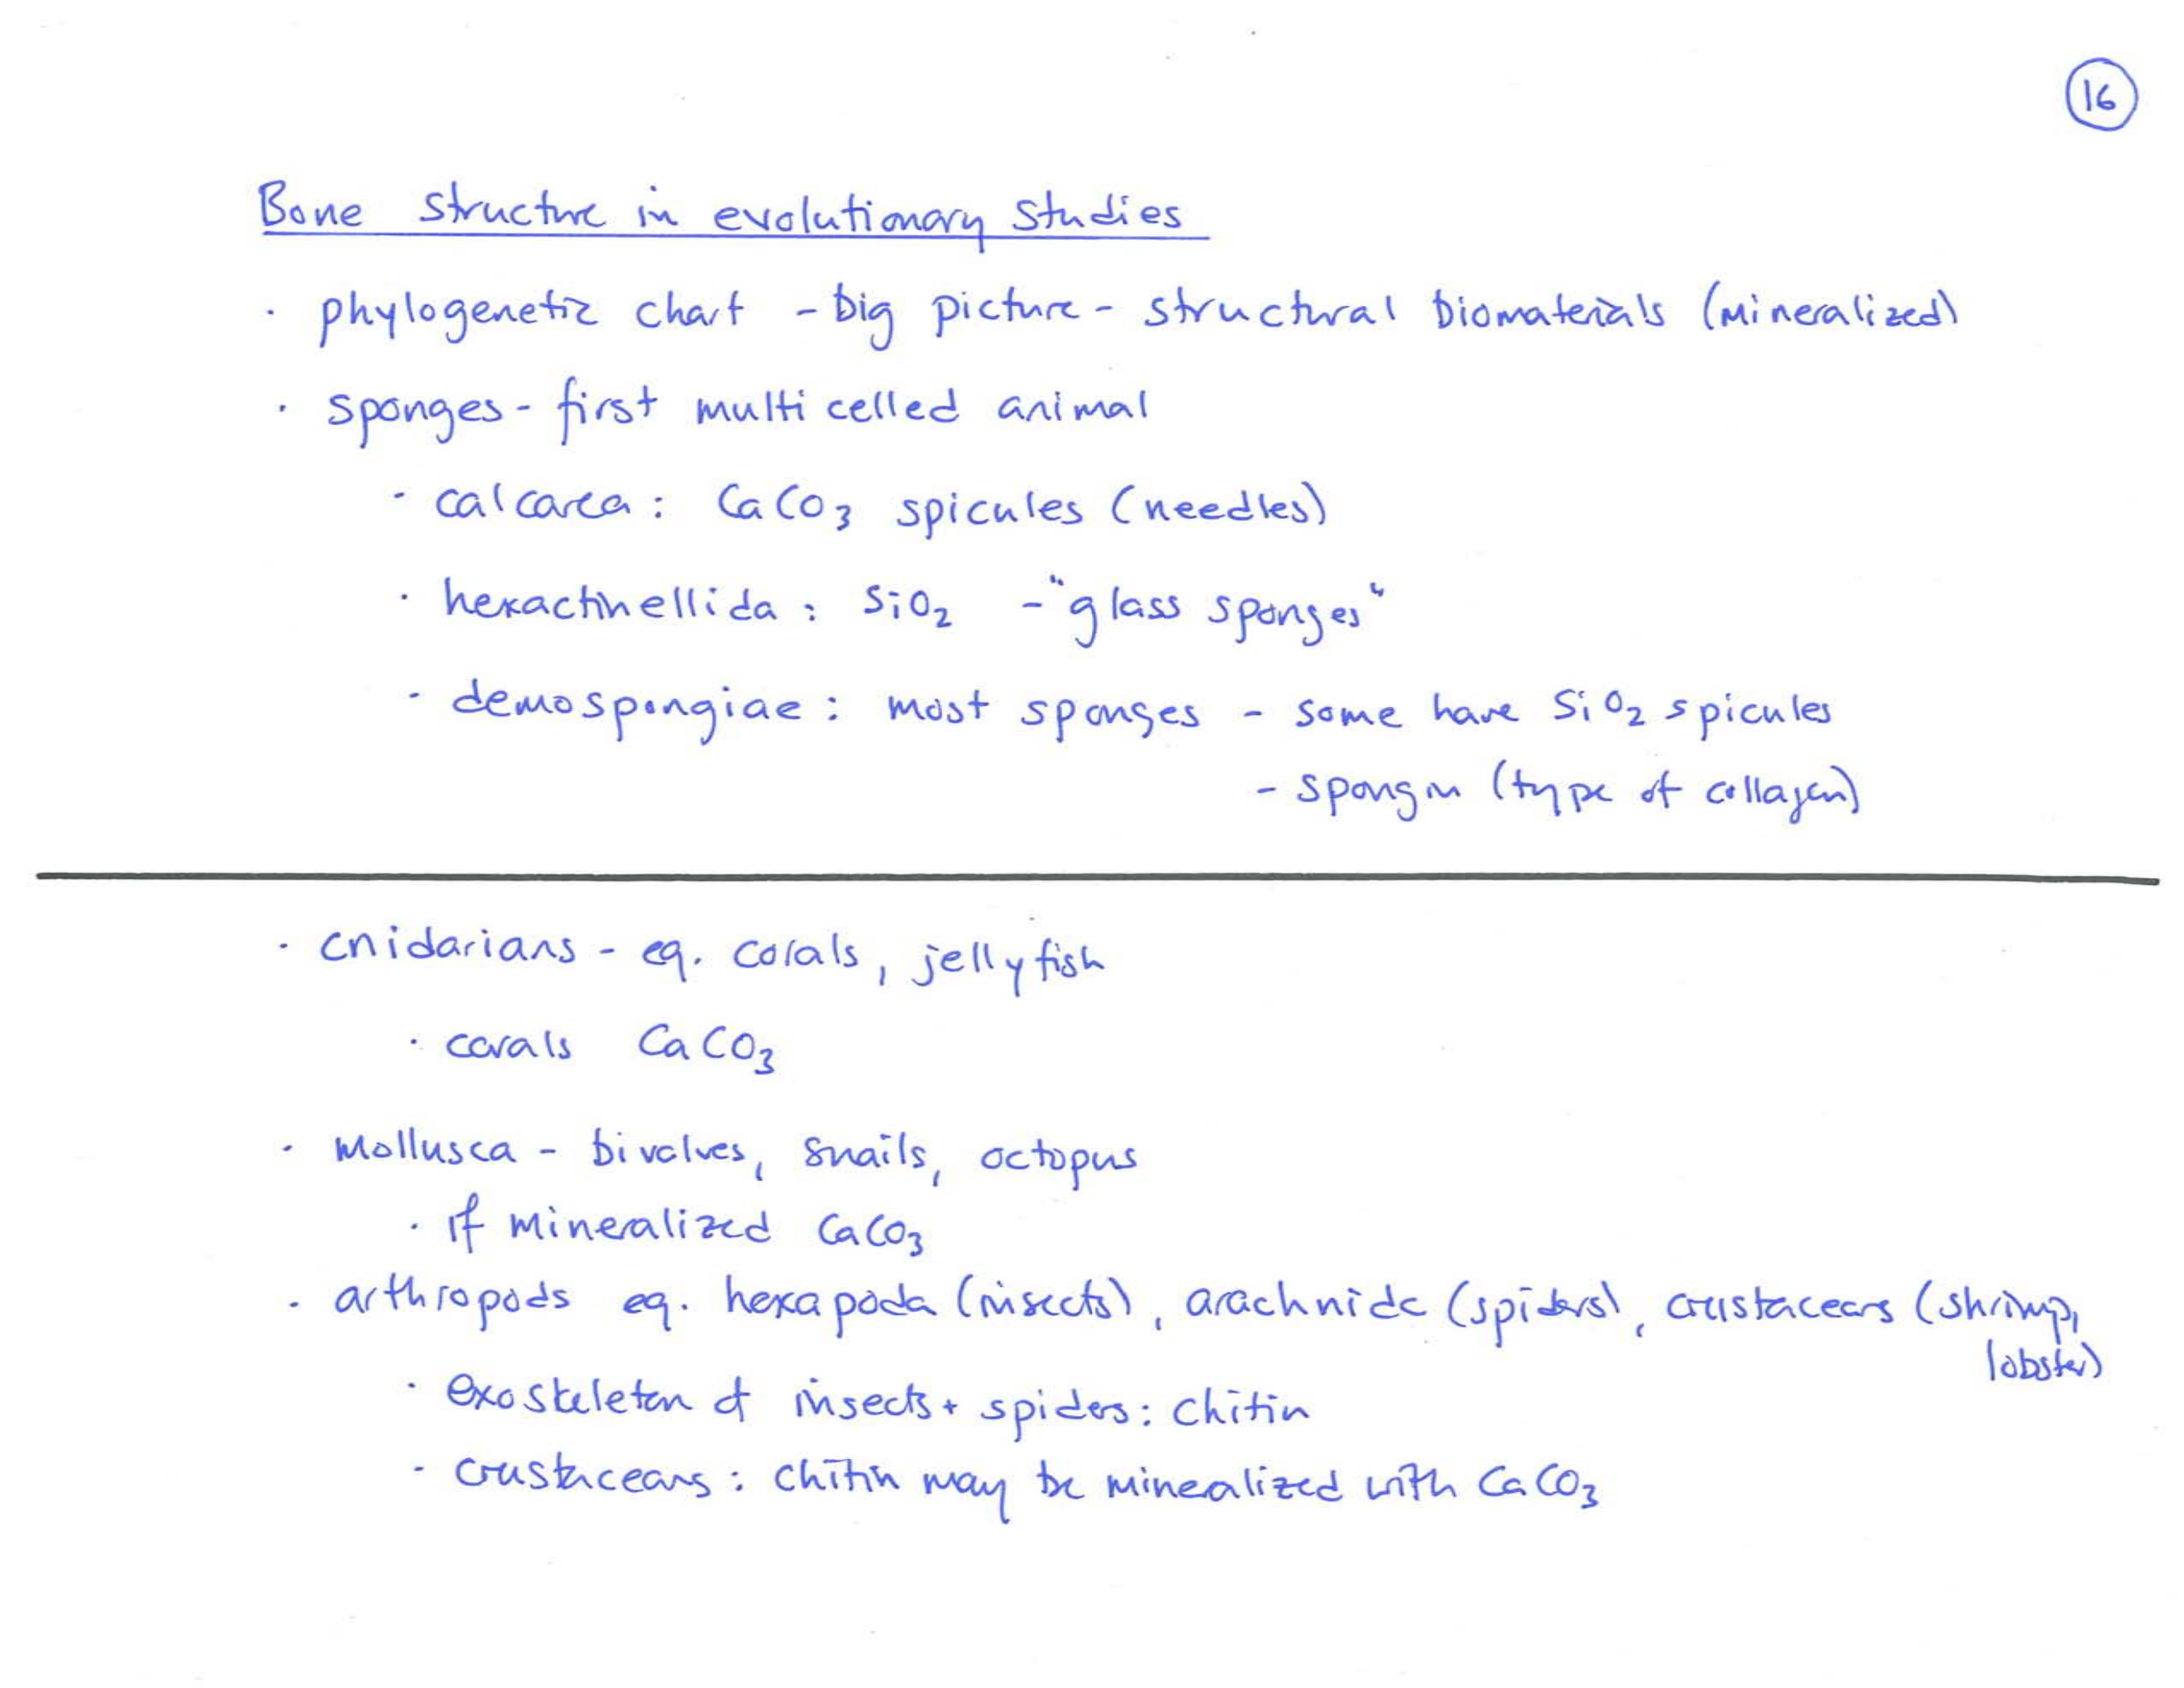 16
Bone structure in evolutionary studies
· phylogenetic chart - big picture - structural biomaterials (mineralized)
· sponges - first multi celled animal
· calcarea : CaCO3 spicules (needles)
· hexactinellida : SiO2 - "glass sponges"
· demospongiae : most sponges - some have SiO2 spicules
- spongin (type of collagen)
· cnidarians - eg. corals, jellyfish
· corals CaCO3
· mollusca - bivalves, snails, octopus
· if mineralized CaCO3
· arthropods eg. hexapoda (insects), arachnida (spiders), crustaceans (shrimp,
lobster)
· exoskeleton of insects + spiders : chitin
· crustaceans : chitin may be mineralized with CaCO3